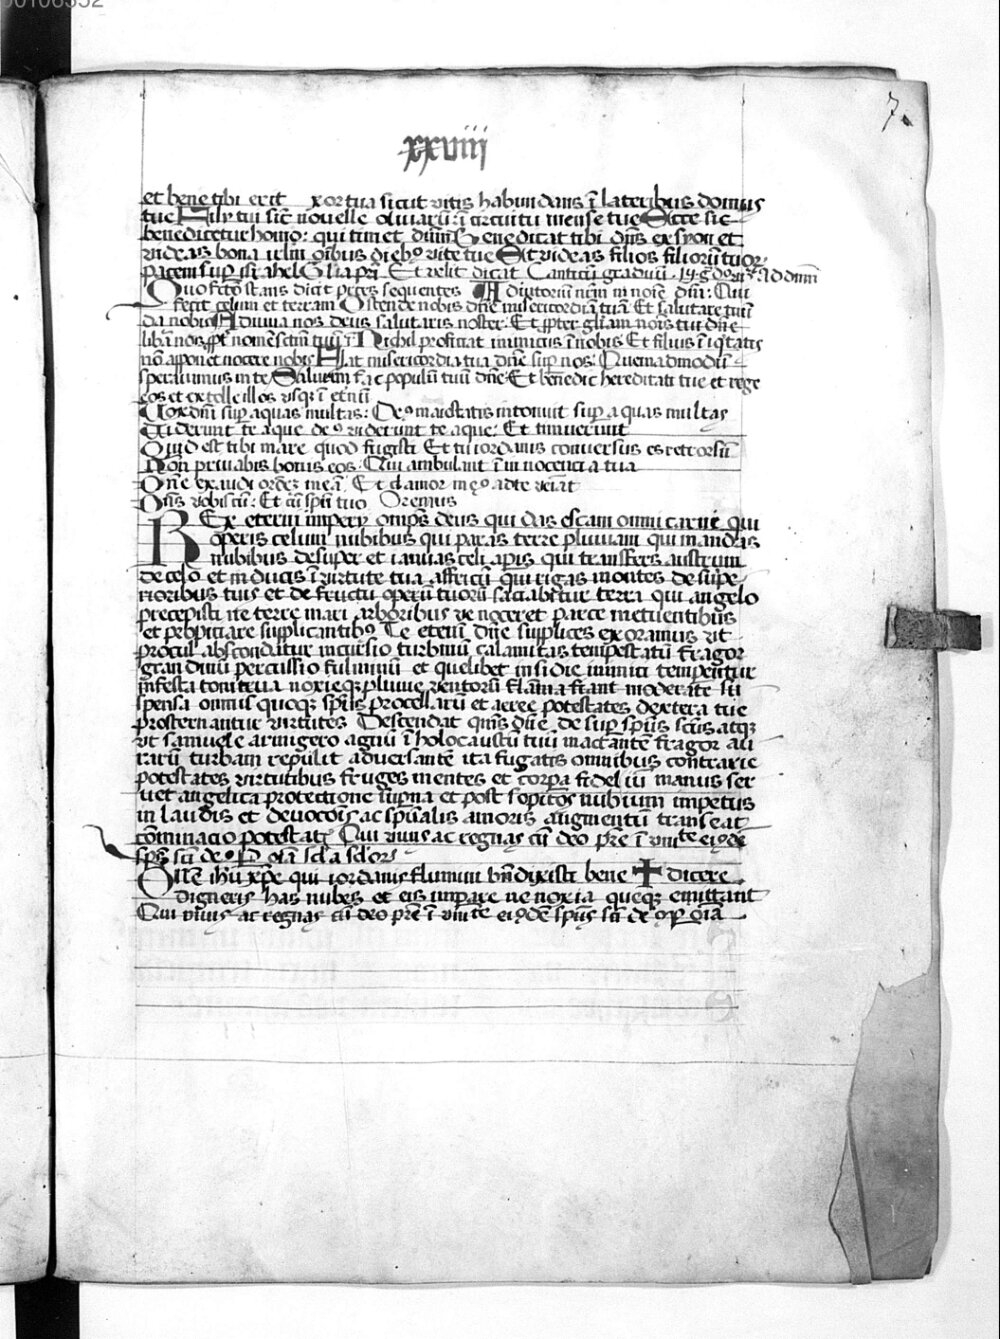 00106352
7.
xxviii
et bene tibi erit xor tua sicut vitis habundans ī lateribus domus
tue Filij tui sic̄ nouelle oliuarū: ī circuitu mense tue Ecce sic
benedicetur homo: qui timet dūm Benedicat tibi dn̄s ex syon et
videas bona irlm oībus dieb9 vite tue Et videas filios filiorū tuor
pacem sup israhel Gl̄ia pr̄i Et velit dicat Canticū graduū Ad dnm̄
Quo fctō stans dicit preces sequentes Adiutoriū nr̄m in noīe dn̄i: Qui
fecit celum et terram Ostende nobis dn̄e misericordiā tuā Et salutare tuū
da nobis Adiuua nos deus salutaris noster: Et ꝓpter gl̄iam nois tui dn̄e
libā nos Nichil proficiat inimicus ī nobis Et filius īiq̄tatis
nō apponet nocere nobis Fiat misericordia tua dn̄e sup nos: Quemadmodū
sperauimus in te Saluum fac populū tuū dn̄e Et benedic hereditati tue et rege
eos et extolle illos vsq ī et̄nū
Vox dnī sup aquas multas: De9 maiestatis intonuit sup aquas multas
Viderunt te aque de9 viderunt te aque: Et timuerunt
Quid est tibi mare quod fugisti Et tu iordanis conuersus es retrorsū
Non priuabis bonis eos: Qui ambulant ī innocencia tua
Dn̄e exaudi or̄oēz meā Et clamor me9 ad te veīat
Dn̄s vobiscū: Et cū spū tuo Oremus
REx eterni impery omps̄ deus qui das escam omni carni qui
operis celum nubibus qui paras terre pluuiam qui mandas
nubibus desuper et ianuas celi apis qui transfers austrum
de celo et inducis ī virtute tua affricū qui rigas montes de supe
rioribus tuis et de fructu operū tuorū saciabitur terra qui angelo
precepisti ne terre mari arboribus ve noceret parce metuentibus
et propiciare supplicantib9 Te eterni dn̄e supplices exoramus vt
procul abscondatur incursio turbinū calamitas tempestatū fragor
grandinū percussio fulminū et quelibet insidie inimici temperentur
infesta tonitrua noxieqz pluuie ventorū flamīa fiant moderate su
spensa omnis quoqz spūs procellarū et aeree potestates dextera tue
prosternantur virtutes Descendat qm̄s dn̄e desup spūs scūs atqz
vt samuele armigero agnū ī holocaustū tuū mactante fragor au
rarū turbam repulit aduersante ita fugatis omnibus contrarie
potestates virtutibus fruges mentes et corpa fideliū manus ser
uet angelica protectione supna et post sopitos nubium impetus
in laudis et deuocōis ac spūalis amoris augmentū transeat
cōminacio potestatis Qui viuis ac regnas cū deo pr̄e ī vnite ei9dē
spūs scī de9 P oīa scl̄a scl̄or
Dn̄e ihū xp̄e qui iordanis flumini bn̄dixisti bene ✝ dicere
digneris has nubes et eis impare ne noxia queqz emittant
Qui viuis ac regnas cū deo pr̄e ī vnite ei9dē spūs scī de9 P oīa